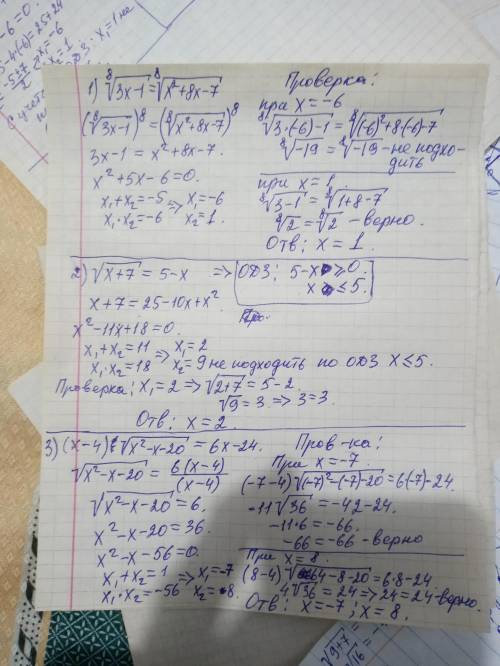 -6=0.
5-4·(-6)=25+24
1) ⁸√3x-1 = ⁸√x²+8x-7
(⁸√3x-1)⁸ = (⁸√x²+8x-7)⁸
3x-1 = x²+8x-7.
x²+5x-6=0.
x₁+x₂=-5 => x₁=-6
x₁·x₂=-6 x₂=1.
Проверка:
при x=-6
⁸√3·(-6)-1 = ⁸√(-6)²+8·(-6)-7
⁸√-19 = ⁸√-19 - не подхо-
дить
при x=1.
⁸√3-1 = ⁸√1+8-7
⁸√2 = ⁸√2 - верно.
Отв: x=1.
2) √x+7 = 5-x => ОДЗ: 5-x ≥0.
x ≤5.
x+7=25-10x+x².
x²-11x+18=0.
x₁+x₂=11 => x₁=2
x₁·x₂=18 x₂=9 не подходить по ОДЗ x≤5.
Проверка: x₁=2 => √2+7 = 5-2.
√9=3. => 3=3.
Отв: x=2.
3) (x-4)√x²-x-20 = 6x-24.
√x²-x-20 = 6(x-4)/(x-4)
√x²-x-20 = 6.
x²-x-20=36.
x²-x-56=0.
x₁+x₂=1 => x₁=-7
x₁·x₂=-56 x₂=8.
Пров-ка:
При x=-7.
(-7-4)√(-7)²-(-7)-20 = 6(-7)-24.
-11√36 = -42-24.
-11·6=-66.
-66=-66-верно
При x=8.
(8-4)√64-8-20 = 6·8-24.
4√36=24 => 24=24-верно.
Отв: x=-7; x=8.
√9+7=
√16=